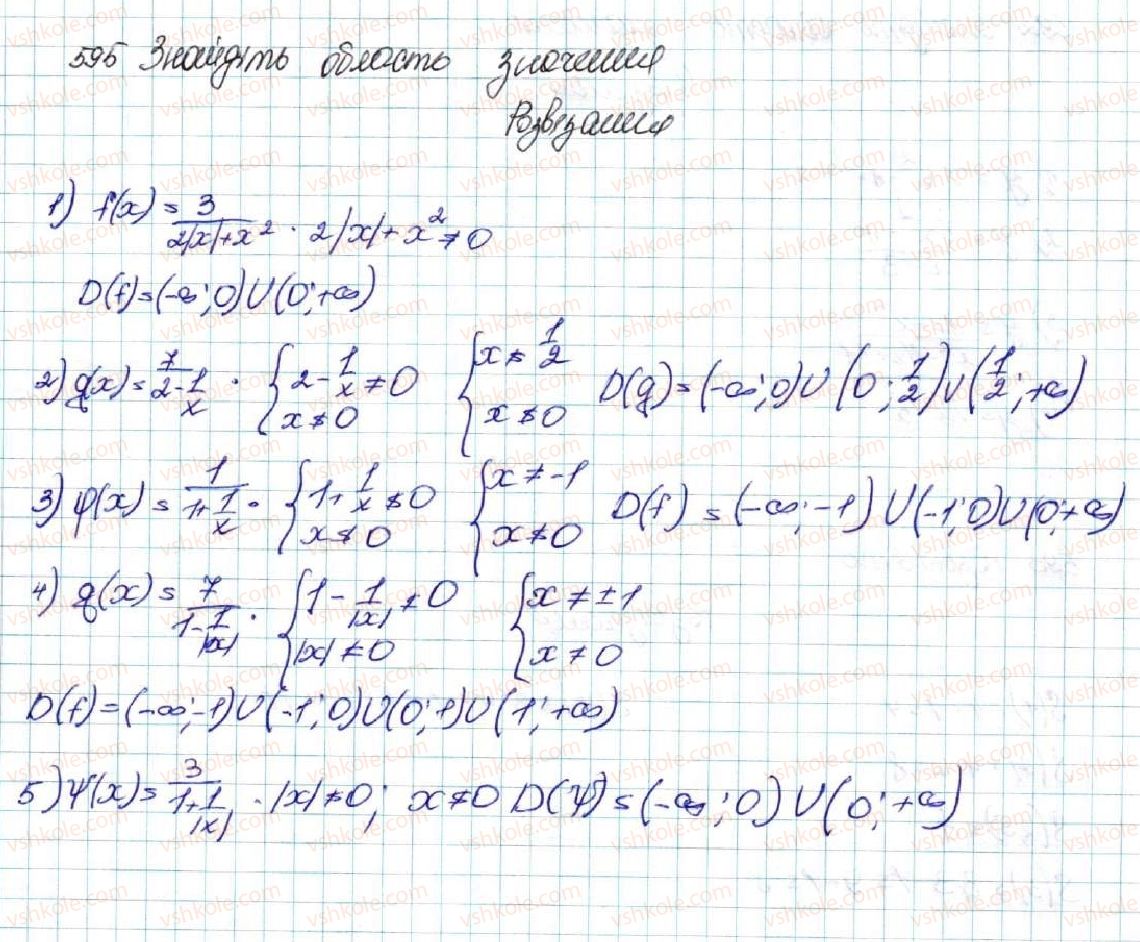 595 Знайдіть область значення
Розв'язання
1) f(x) = 3/(2|x|+x²). 2|x|+x² ≠ 0
D(f) = (-∞; 0) U (0; +∞)
2) g(x) = 7/(2-1/x). {2-1/x ≠ 0 x ≠ 0 {x ≠ 1/2 x ≠ 0 D(g) = (-∞; 0) U (0; 1/2) U (1/2; +∞)
3) φ(x) = 1/(1+1/x). {1+1/x ≠ 0 x ≠ 0 {x ≠ -1 x ≠ 0 D(f) = (-∞; -1) U (-1; 0) U (0; +∞)
4) g(x) = 7/(1-1/|x|). {1-1/|x| ≠ 0 |x| ≠ 0 {x ≠ ±1 x ≠ 0
D(f) = (-∞; -1) U (-1; 0) U (0; 1) U (1; +∞)
5) ψ(x) = 3/(1+1/|x|). |x| ≠ 0; x ≠ 0 D(ψ) = (-∞; 0) U (0; +∞)
vshkole.com